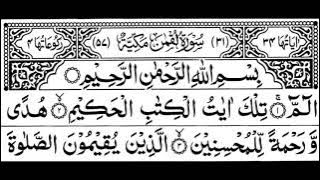 اٰیَاتُهَا ۳۴ (۳۱) سُوْرَةُ لُقْمٰنَ مَكِّیَّةٌ (۵۷) رُكُوْعَاتُهَا ۴
بِسْمِ اللّٰهِ الرَّحْمٰنِ الرَّحِیْمِ
الٓمّٓۚ۝۱ تِلْكَ اٰیٰتُ الْكِتٰبِ الْحَكِیْمِۙ۝۲ هُدًى
وَّ رَحْمَةً لِّلْمُحْسِنِیْنَۙ۝۳ الَّذِیْنَ یُقِیْمُوْنَ الصَّلٰوةَ